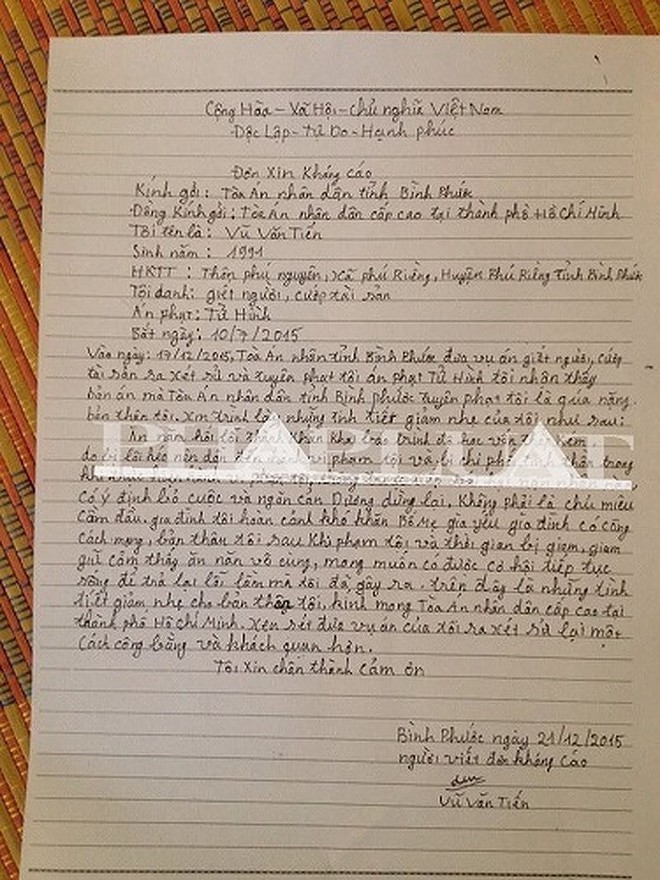 Cộng Hòa - Xã Hội - Chủ nghĩa Việt Nam
Độc Lập - Tự Do - Hạnh phúc
Đơn Xin Kháng cáo
Kính gởi: Tòa Án nhân dân tỉnh Bình Phước
Đồng Kính gởi: Tòa Án nhân dân cấp cao tại thành phố Hồ Chí Minh
Tôi tên là: Vũ Văn Tiến
Sinh năm: 1991
HKTT: Thôn phú nguyên, Xã phú Riềng, Huyện Phú Riềng Tỉnh Bình Phước
Tội danh: giết người, cướp tài sản
Án phạt: Tử Hình
Bắt ngày: 10/7/2015
Vào ngày: 17/12/2015, Tòa Án nhân tỉnh Bình Phước đưa vụ án giết người, cướp
tài sản ra xét sử và tuyên phạt tôi án phạt Tử Hình tôi nhận thấy
bản án mà Tòa Án nhân dân tỉnh Bình phước tuyên phạt tôi là qúa nặng.
bản thân tôi. Xin trình bày những tình tiết giảm nhẹ của tôi như sau:
Ăn năn hối lỗi thành khẩn khai báo trình độ học vấn kém
do bị lôi kéo nên dẫn đến phạm tội và bị chi phối tinh thần trong
có ý định bỏ cuộc và ngăn cản Dương dừng lại, Không phải là chủ mưu
cầm đầu, gia đình tôi hoàn cảnh khó khăn Bố Mẹ già yếu gia đình có công
cách mạng, bản thân tôi sau khi phạm tội và thời gian bị giam, giam
giữ cảm thấy ăn năn vô cùng, mong muốn có được cơ hội tiếp tục
sống để trả lại lỗi lầm mà tôi đã gây ra. trên đây là những tình
tiết giảm nhẹ cho bản thân tôi, kính mong Tòa Án nhân dân cấp cao tại
thành phố Hồ Chí Minh. Xem sét đưa vụ án của tôi ra xét sử lại một
cách công bằng và khách quan hơn.
Tôi Xin chân thành cảm ơn
Bình Phước ngày 21/12/2015
người viết đơn kháng cáo
Vũ Văn Tiến